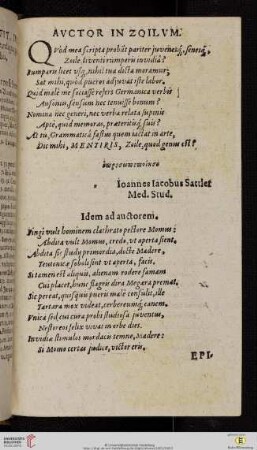 AVCTOR IN ZOILVM.
QVòd mea scripta probãt pariter iuvenesq́;, senesq́;,
Zoile, liventi rumperis invidiâ?
Rumparis licet usq́;, nihil tua dicta moramur;
Sat mihi, quòd pueros adjuvat iste labor.
Quid malè me sociasse refers Germanica verbis
Ausoniis, sensum nec tenuisse bonum?
Nomina nec generi, nec verba relata supinis
Aptè, quod memoras, præteritiq́; suis?
At tu, Grammaticâ fastus quem iactat in arte,
Dic mihi, MENTIRIS, Zoile, quod genus est?
Ioannes Iacobus Sattler
Med. Stud.
Idem ad auctorem.
Fingi vult hominem clathrato pectore Momus:
Abdita vult Momus, credo, ut aperta fient.
Abdita sic studij primordia, docte Madere,
Teutonicæ soboli sint ut aperta, facis.
Si tamen est aliquis, alienam rodere famam
Cui placet, hunc stagris dira Megæra premat.
Sic pereat, quisquis pueris malè consulit, ille
Tartara mox videat, cerbereumq́; canem.
Vnica sed cui cura probi studiosa iuventus,
Nestoreos felix vivat in orbe dies.
Invidiæ stimulos mordacis temne, Madere:
Si Momo certas judice, victor eris.
EPI-